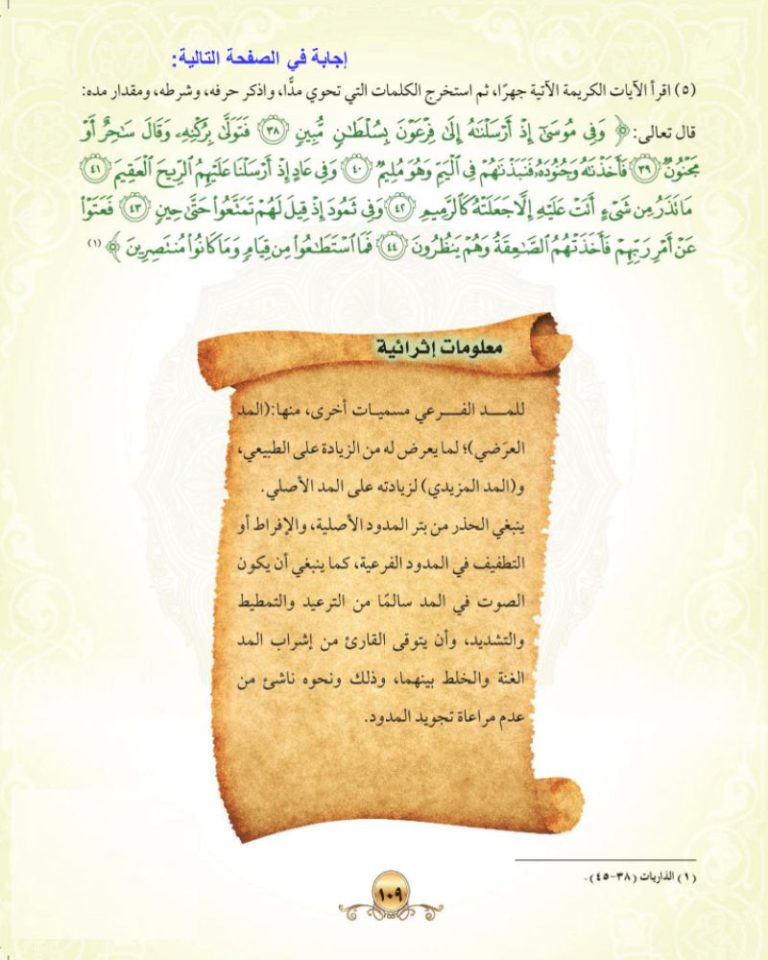 إجابة في الصفحة التالية:
(٥) اقرأ الآيات الكريمة الآتية جهرًا، ثم استخرج الكلمات التي تحوي مدًّا، واذكر حرفه، وشرطه، ومقدار مده:
قال تعالى: ﴿ وَفِي مُوسَىٰٓ إِذْ أَرْسَلْنَٰهُ إِلَىٰ فِرْعَوْنَ بِسُلْطَٰنٍ مُّبِينٍ ﴿٣٨﴾ فَتَوَلَّىٰ بِرُكْنِهِۦ وَقَالَ سَٰحِرٌ أَوْ
مَجْنُونٌ ﴿٣٩﴾ فَأَخَذْنَٰهُ وَجُنُودَهُۥ فَنَبَذْنَٰهُمْ فِي ٱلْيَمِّ وَهُوَ مُلِيمٌ ﴿٤٠﴾ وَفِي عَادٍ إِذْ أَرْسَلْنَا عَلَيْهِمُ ٱلرِّيحَ ٱلْعَقِيمَ ﴿٤١﴾
مَا تَذَرُ مِن شَىْءٍ أَتَتْ عَلَيْهِ إِلَّا جَعَلَتْهُ كَٱلرَّمِيمِ ﴿٤٢﴾ وَفِي ثَمُودَ إِذْ قِيلَ لَهُمْ تَمَتَّعُوا۟ حَتَّىٰ حِينٍ ﴿٤٣﴾ فَعَتَوْا۟
عَنْ أَمْرِ رَبِّهِمْ فَأَخَذَتْهُمُ ٱلصَّٰعِقَةُ وَهُمْ يَنظُرُونَ ﴿٤٤﴾ فَمَا ٱسْتَطَٰعُوا۟ مِن قِيَامٍ وَمَا كَانُوا۟ مُنتَصِرِينَ ﴾ (١)
معلومات إثرائية
للمـــد الفـــرعي مسميـات أخرى، منها:(المد
العرَضي)؛ لما يعرض له من الزيادة على الطبيعي،
و(المد المزيدي) لزيادته على المد الأصلي.
ينبغي الحذر من بتر المدود الأصلية، والإفراط أو
التطفيف في المدود الفرعية، كما ينبغي أن يكون
الصوت في المد سالمًا من الترعيد والتمطيط
والتشديد، وأن يتوقى القارئ من إشراب المد
الغنة والخلط بينهما، وذلك ونحوه ناشئ من
عدم مراعاة تجويد المدود.
(١) الذاريات (٣٨-٤٥).
١٠٩